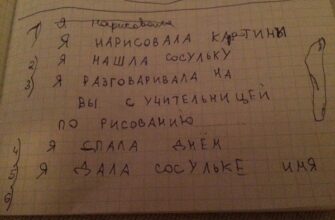 1) Я нарисовала
Я НАРИСОВАЛА КАРТИНЫ
2) Я НАШЛА СОСУЛЬКУ
3) Я РАЗГОВАРИВАЛА НА
ВЫ С УЧИТЕЛЬНИЦЕЙ
ПО РИСОВАНИЮ
4) Я СПАЛА ДНЁМ
5) Я ДАЛА СОСУЛЬКЕ ИМЯ